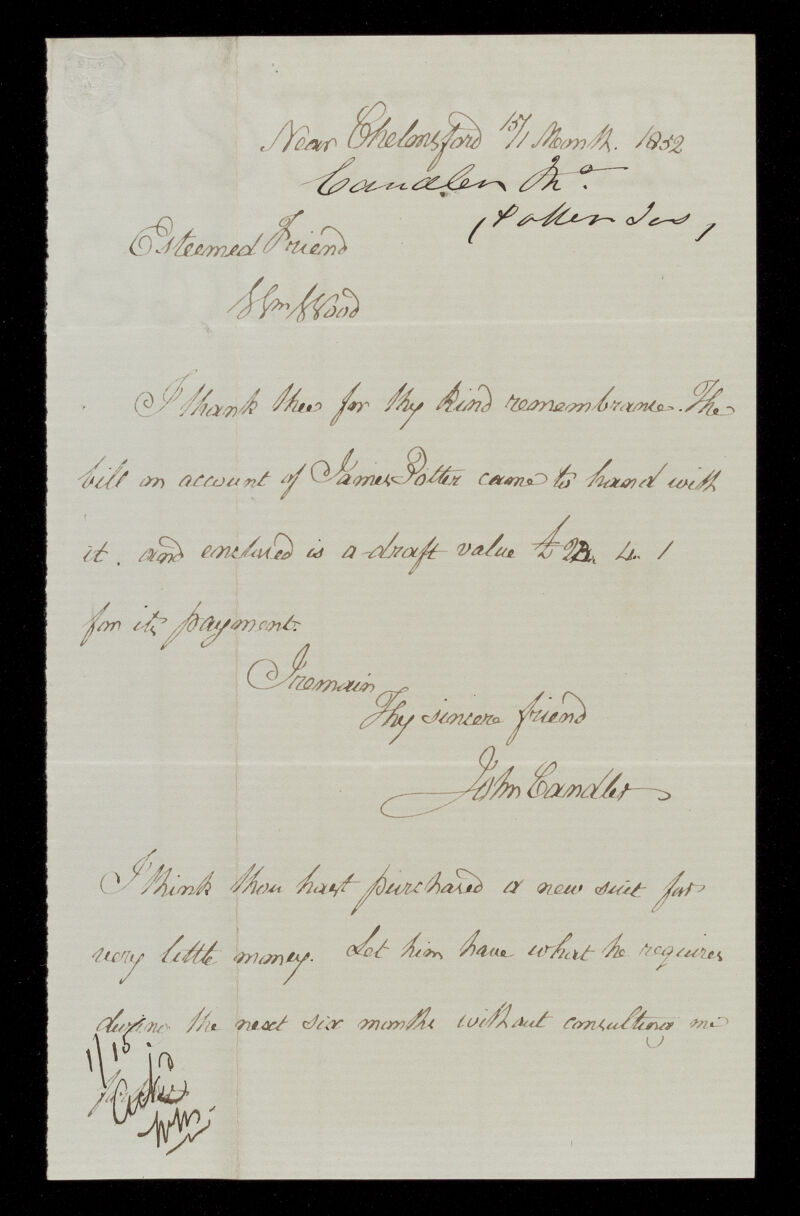 Near Chelmsford 15/1 Month. 1852
Candler Jno.
(Potter Jas)
Esteemed Friend
Wm Wood
I thank thee for thy kind remembrance. The
bill on account of James Potter came to hand with
it. and enclosed is a draft value £ 4. 1
for its payment.
I remain
Thy sincere friend
John Candler
I think thou hast purchased a new suit for
very little money. Let him have what he requires
during the next six months without consulting me
1/15
Ackd